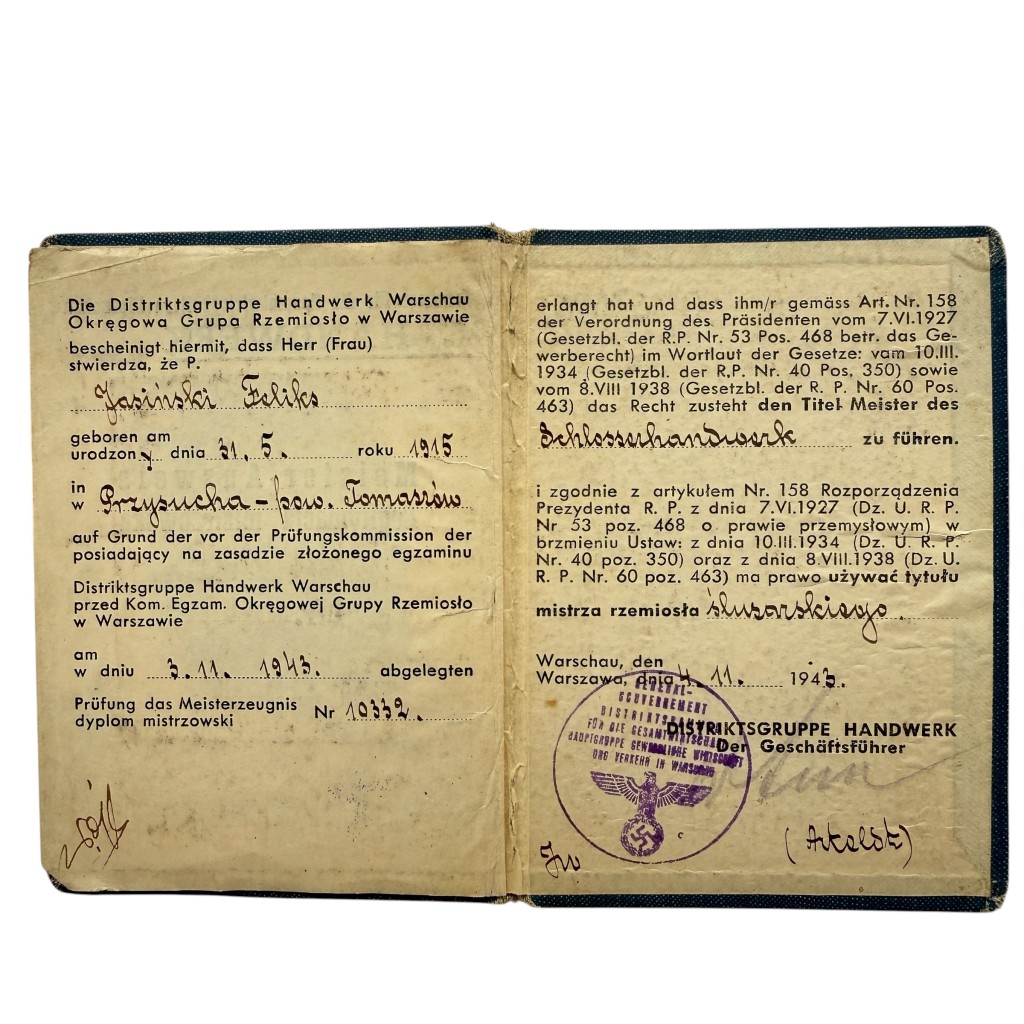 Die Distriktsgruppe Handwerk Warschau
Okręgowa Grupa Rzemiosło w Warszawie
bescheinigt hiermit, dass Herr (Frau)
stwierdza, że P.
Jasiński Feliks
geboren am
urodzony dnia 31. 5. roku 1915
in
w Przysucha - pow. Tomaszów
auf Grund der vor der Prüfungskommission der
posiadający na zasadzie złożonego egzaminu
Distriktsgruppe Handwerk Warschau
przed Kom. Egzam. Okręgowej Grupy Rzemiosło
w Warszawie
am
w dniu 3. 11. 1943. abgelegten
Prüfung das Meisterzeugnis
dyplom mistrzowski Nr 10332.
erlangt hat und dass ihm/r gemäss Art. Nr. 158
der Verordnung des Präsidenten vom 7.VI.1927
(Gesetzbl. der R. P. Nr. 53 Pos. 468 betr. das Ge-
werberecht) im Wortlaut der Gesetze: vam 10.III.
1934 (Gesetzbl. der R.P. Nr. 40 Pos, 350) sowie
vom 8.VIII 1938 (Gesetzbl. der R. P. Nr. 60 Pos.
463) das Recht zusteht den Titel Meister des
Schlosserhandwerk zu führen.
i zgodnie z artykułem Nr. 158 Rozporządzenia
Prezydenta R. P. z dnia 7.VI.1927 (Dz. U. R. P.
Nr 53 poz. 468 o prawie przemysłowym) w
brzmieniu Ustaw: z dnia 10.III.1934 (Dz. U. R. P.
Nr. 40 poz. 350) oraz z dnia 8.VIII.1938 (Dz. U.
R. P. Nr. 60 poz. 463) ma prawo używać tytułu
mistrza rzemiosła ślusarskiego.
Warschau, den
Warszawa, dnia 4. 11. 1943.
GENERAL-
GOUVERNEMENT
DISTRIKTSKAMMER
FÜR DIE GESAMTWIRTSCHAFT
HAUPTGRUPPE GEWERBLICHE WIRTSCHAFT
UND VERKEHR IN WARSCHAU
DISTRIKTSGRUPPE HANDWERK
Der Geschäftsführer